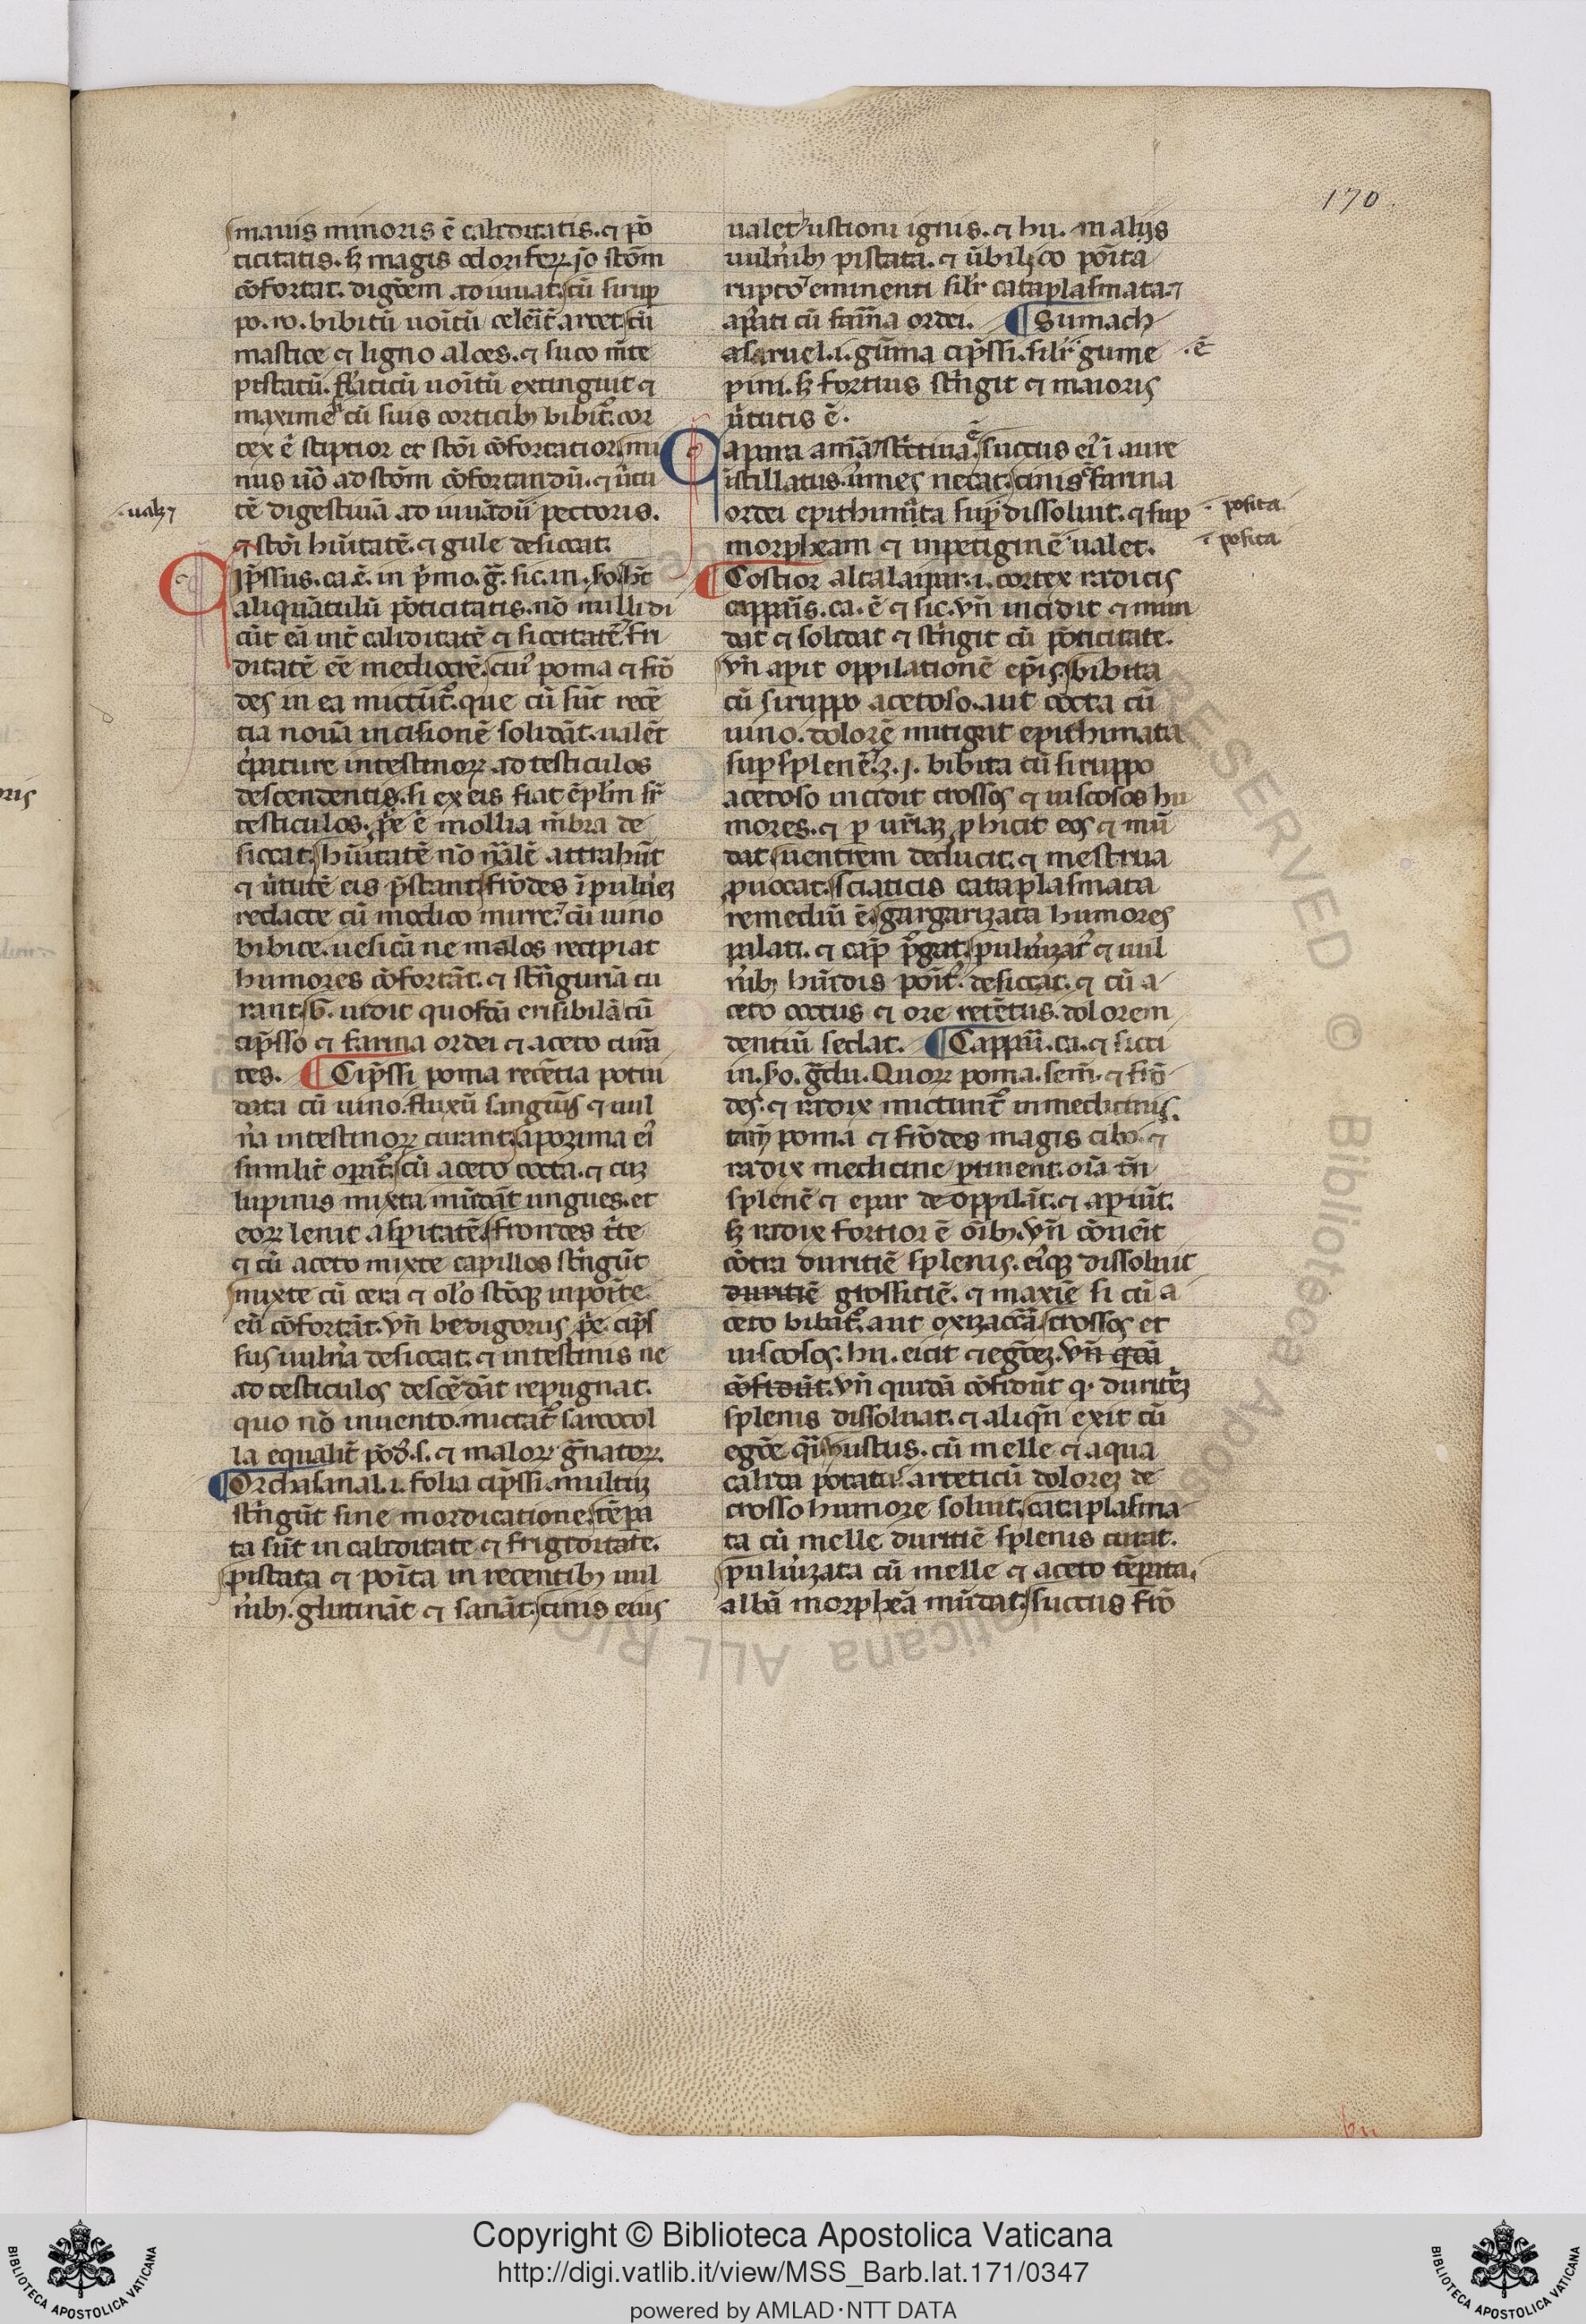 170
suauis minoris ē caliditatis. ⁊ pō
ticitatis. sꝫ magis odoriferꝝ. iō stōm
cōfortat. digōem adiuuat. cū sirup
po. ro. bibitū uoītū celerit̄ arcet. cū
mastice ⁊ ligno aloes. ⁊ suco mēte
pistatū. flaticū uoītū extinguit ⁊
maxime cū suis corticibꝫ bibit̄. cor
tex ē stiptior et stōi cōfortatior. mi
nus uō ad stōm cōfortandū. ⁊ ūtu
ualꝫ ⁊
tē digestiuā adiuuādū pectoris.
⁊ stōi hūitatē. ⁊ gule desiccat.
Cip̄ssus. ca. ē. in p̄mo. ḡ. sic. in. so. hꝫ
aliquātulū pōticitatis. nō nulli di
cūt eā int̄ caliditatē ⁊ siccitatē. fri
ditatē eē mediocrē. cuiꝰ poma ⁊ frō
des in ea mictūt̄. que cū sūt recē
tia nouā incisionē solidāt. ualēt
c̄pature intestinoꝝ ad testiculos
descendentis. si ex eis fiat ēpl̄m sr̄
testiculos. p̄e ē mollia mēbra de
siccat. hūitatē nō nāle attrahūt
⁊ ūtutē eis p̄stant. frōdes ī puluēꝫ
redacte cū modico mirre. cū uino
bibite. uesicā ne malos recipiat
humores cōfortāt. ⁊ strīguriā cu
rant. G. uidit quosdā erisibilā cū
cip̄sso ⁊ farina ordei ⁊ aceto curā
tes. ¶ Cip̄ssi poma recētia potui
data cū uino. fluxū sanguīs ⁊ uul
na intestinoꝝ curant. apozima eiꝰ
similit̄ opat̄. cū aceto cocta. ⁊ cuꝫ
lupinis mixta mūdāt ungues. et
eoꝝ lenit aspitatē. frondes t̄te
⁊ cū aceto mixte capillos strīgūt
mixte cū cera ⁊ olō stōqꝫ inpoīte
eū cōfortāt. vn̄ bedigorus p̄e. cip̄s
sus uulna desiccat. ⁊ intestinis ne
ad testiculos descēdāt repugnat.
quo nō inuento. mictat̄ sarcocol
la equalit̄ pōd. s. ⁊ maloꝝ ḡnatoꝝ.
¶ Orchasanal. i. folia cip̄ssi. multuꝫ
strīgūt sine mordicatione. tēpa
ta sūt in caliditate ⁊ frigiditate.
pistata ⁊ poīta in recentibꝫ uul
nībꝫ. glutināt ⁊ sanāt. cinis eius
ualet ustioni ignis. ⁊ hu. malijs
uulnībꝫ pistata. ⁊ ūbilico poīta
rupto eminenti silr̄ cataplasmata. ⁊
apati cū farīna ordei. ¶ Sumach
asaruel. i. gūma cip̄ssi. silr̄ gume
. ē
pini. sꝫ fortius strīgit ⁊ maioris
ūtutis ē.
Capara amā stētiua. ē succus eiꝰ ī aure
īstillatus. ūmes necat. cinis ⁊ farina
ordei epithimata sup dissoluit. ⁊ sup
. posita
morpheam ⁊ inpetiginē ualet.
. posita
¶ Costior altalaipar. i. cortex radicis
cappāis. ca. ē ⁊ sic. vn̄ incidit ⁊ mun
dat ⁊ solidat ⁊ strīgit cū pōticitate.
vn̄ apit oppilationē epis. bibita
cū siruppo acetoso. aut cocta cū
uino. dolorē mitigat epithimata
sup splenē. ʒ. j. bibita cū siruppo
acetoso incidit crossos ⁊ uiscosos hu
mores. ⁊ p urīaꝫ phicit eos ⁊ mū
dat. uentrem deducit. ⁊ mestrua
puocat. sciaticis cataplasmata
remediū ē. gargarizata humores
palati. ⁊ cap̄ p̄gat. puluīzatꝰ ⁊ uul
nībꝫ hūidis poīt. desiccat. ⁊ cū a
ceto coctus ⁊ ore retētus. dolorem
dentiū sedat. ¶ Cappāri. ca. ⁊ sicci
in. so. ḡdu. Quoꝝ poma. sem̄. ⁊ frō
des. ⁊ radix mictunt̄ in medicinis.
tam̄ poma ⁊ frōdes magis cibo. ⁊
radix medicine ptinent. oīa tn̄
splenē ⁊ epar de oppilāt. ⁊ apiūt.
sꝫ radix fortior ē oībꝫ. vn̄ cōuēit
cōtra duritiē splenis. eiꝰqꝫ dissoluit
duritiē grossitiē. ⁊ maxīe si cū a
ceto bibat̄. aut oxizaccā. crossos et
uiscosos. hu. eicit ⁊ egōeꝫ. vn̄ q̄dā
cōfidūt. vn̄ quidā cōfidūt q. duritēꝫ
splenis dissoluat. ⁊ aliqn̄ exit cū
egōe q̄si pustus. cū melle ⁊ aqua
calida potatꝰ. arteticū doloreꝫ de
crosso humore soluit. cataplasma
ta cū melle duritiē splenis curat.
puluīzata cū melle ⁊ aceto tēpata.
albā morpheā mūdat. succus frō
Copyright © Biblioteca Apostolica Vaticana
http://digi.vatlib.it/view/MSS_Barb.lat.171/0347
powered by AMLAD·NTT DATA
BIBLIOTECA APOSTOLICA VATICANA
BIBLIOTECA APOSTOLICA VATICANA